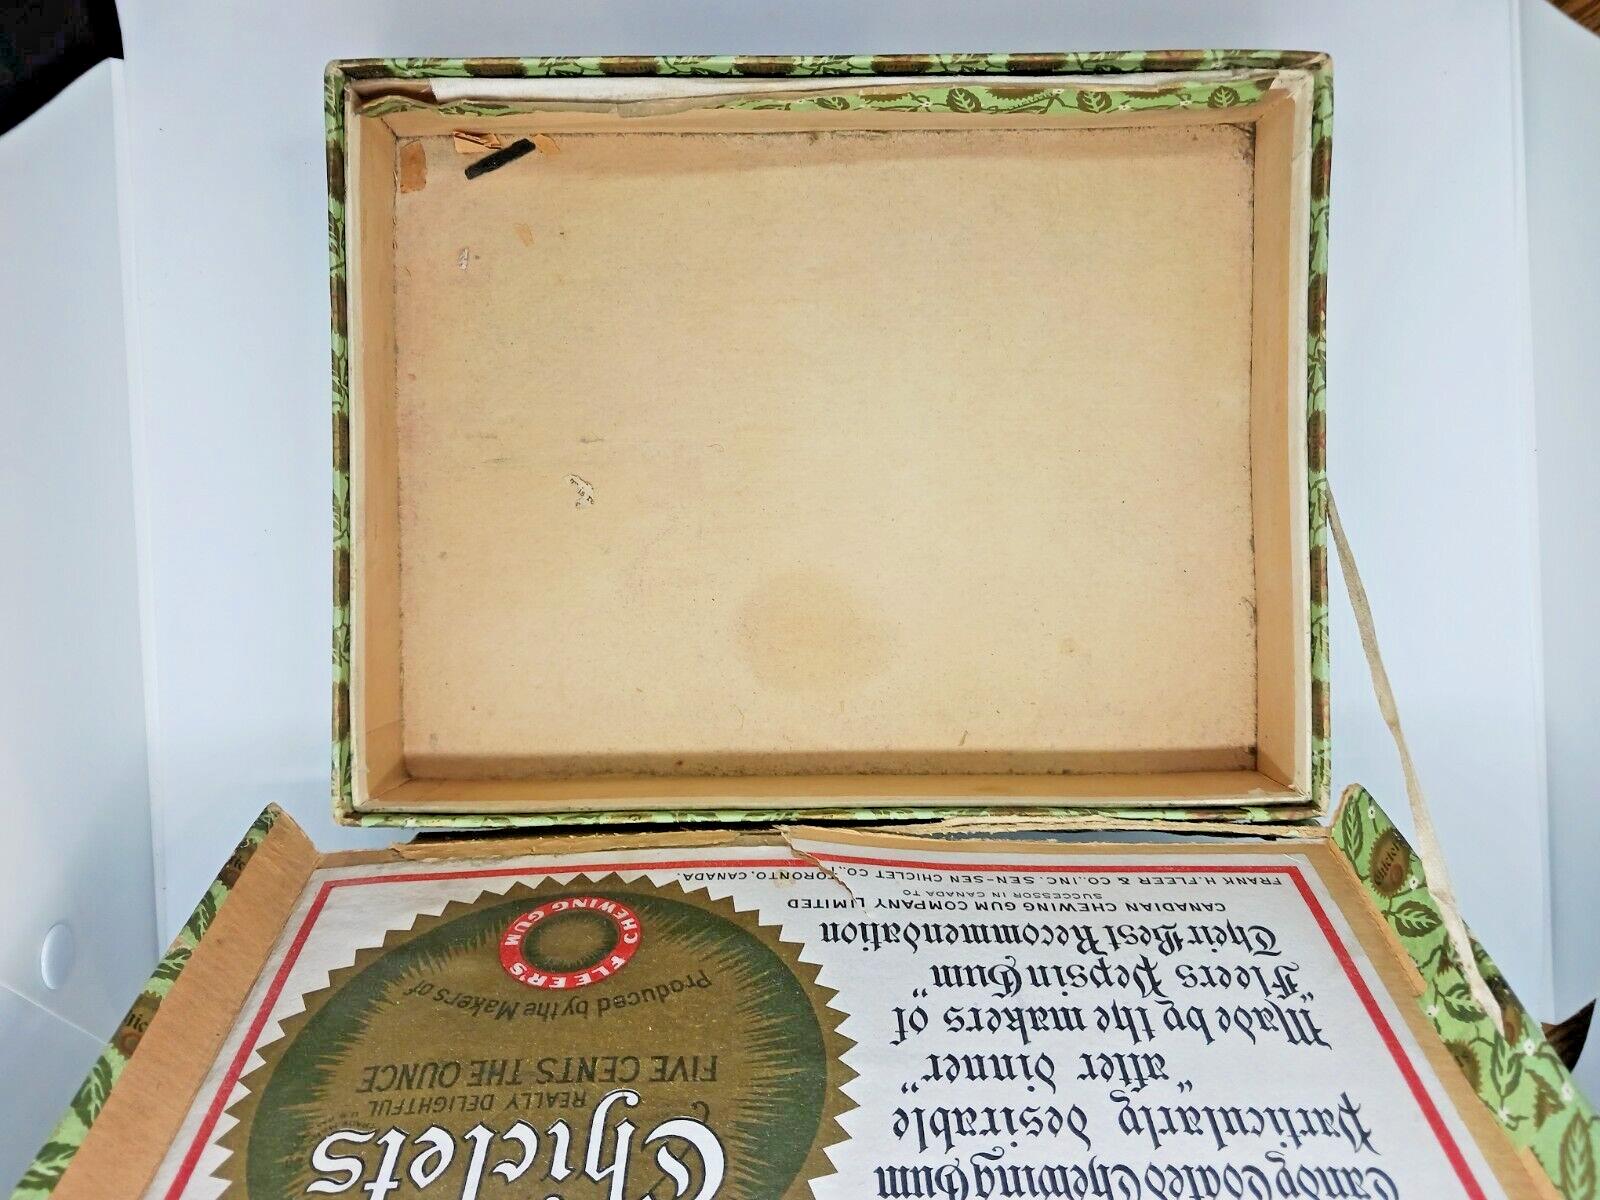 Chiclets
REALLY DELIGHTFUL
FIVE CENTS THE OUNCE
Produced by the Makers of
FLEER'S
CHEWING GUM
Candy Coated Chewing Gum
Particularly desirable
"after dinner"
Made by the makers of
"Fleers Pepsin Gum"
Their Best Recommendation
CANADIAN CHEWING GUM COMPANY LIMITED
SUCCESSOR IN CANADA TO
FRANK H. FLEER & CO., INC. SEN-SEN CHICLET CO., TORONTO, CANADA.
Chiclets